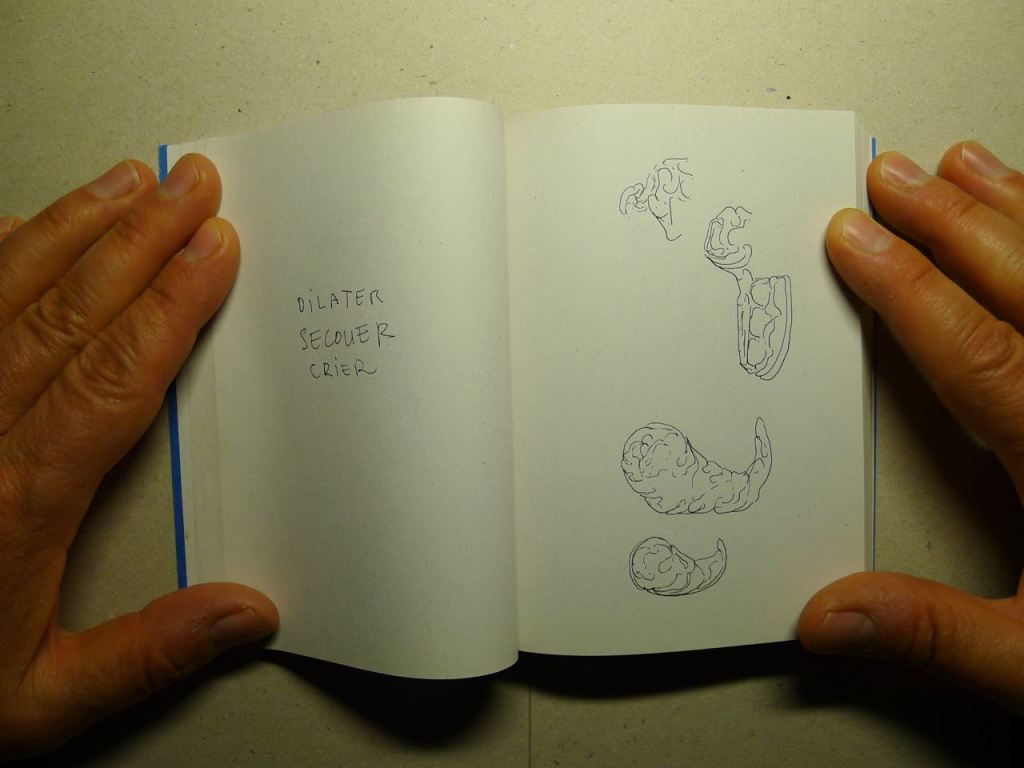 DiLATER
SECOUER
CRiER